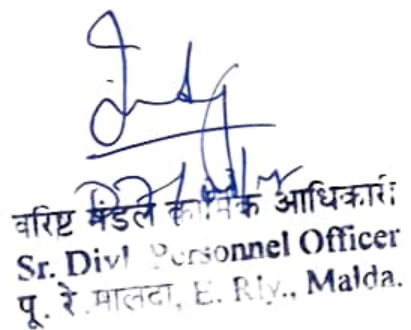 वरिष्ट मंडल कार्मिक आधिकारी
Sr. Divl Personnel Officer
पू. रे. मालदा, E. Rly., Malda.